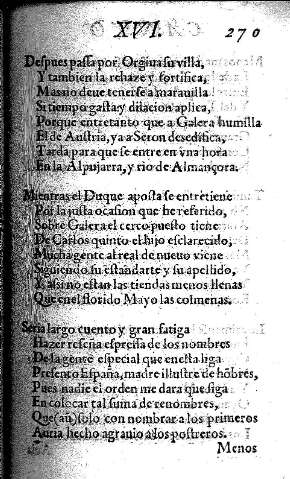 XVI. 270
Despues passa por Orgiua su villa,
Y tambien la rehaze y fortifica,
Mas no deue tenerse a marauilla
Si tiempo gasta y dilacion aplica,
Porque entretanto que a Galera humilla
El de Austria, ya a Seron desedifica,
Tarda para que se entre en vna hora
En la Alpujarra, y rio de Almançora.
Mientras el Duque aposta se entretiene
Por la justa ocasion que he referido,
Sobre Galera el cerco puesto tiene
De Carlos quinto el hijo esclarecido,
Mucha gente al real de nueuo viene
Siguiendo su estandarte y su apellido,
Y assi no estan las tiendas menos llenas
Que en el florido Mayo las colmenas.
Seria largo cuento y gran fatiga
Hazer reseña espressa de los nombres
De la gente especial que en esta liga
Presento España, madre illustre de hõbres,
Pues nadie el orden me dara que siga
En colocar tal suma de renombres,
Que (aũ) solo con nombrar a los primeros
Auria hecho agrauio a los postreros.
Menos